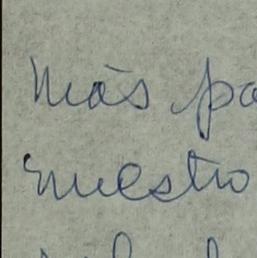 más pa
nuestro